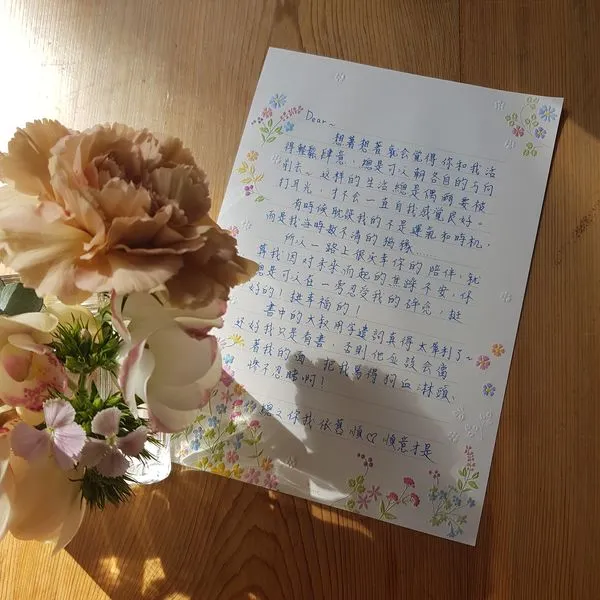 Dear~
想著想著就會覺得你和我活
得輕鬆肆意，總是可以朝各自的方向
前去~ 這樣的生活總是偶爾要被
打耳光，才不會一直自我感覺良好。
有時候耽誤我的不是運氣和時機，
而是我每時數不清的猶豫……
所以一路上很慶幸你的陪伴，就
算我因對未來而起的焦躁不安，你
總是可以在一旁忍受我的碎唸，挺
好的！挺幸福的！
書中的大叔用字遣詞真得太犀利了~
好好我只是看書，否則他每沒會當
著我的面，把我罵得狗血淋頭，
慘不忍睹啊！
總之你我依舊順♡順意才是